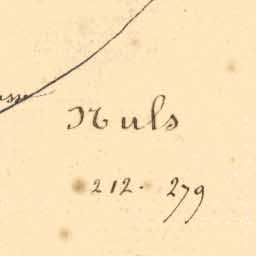 Nuls
212. 279